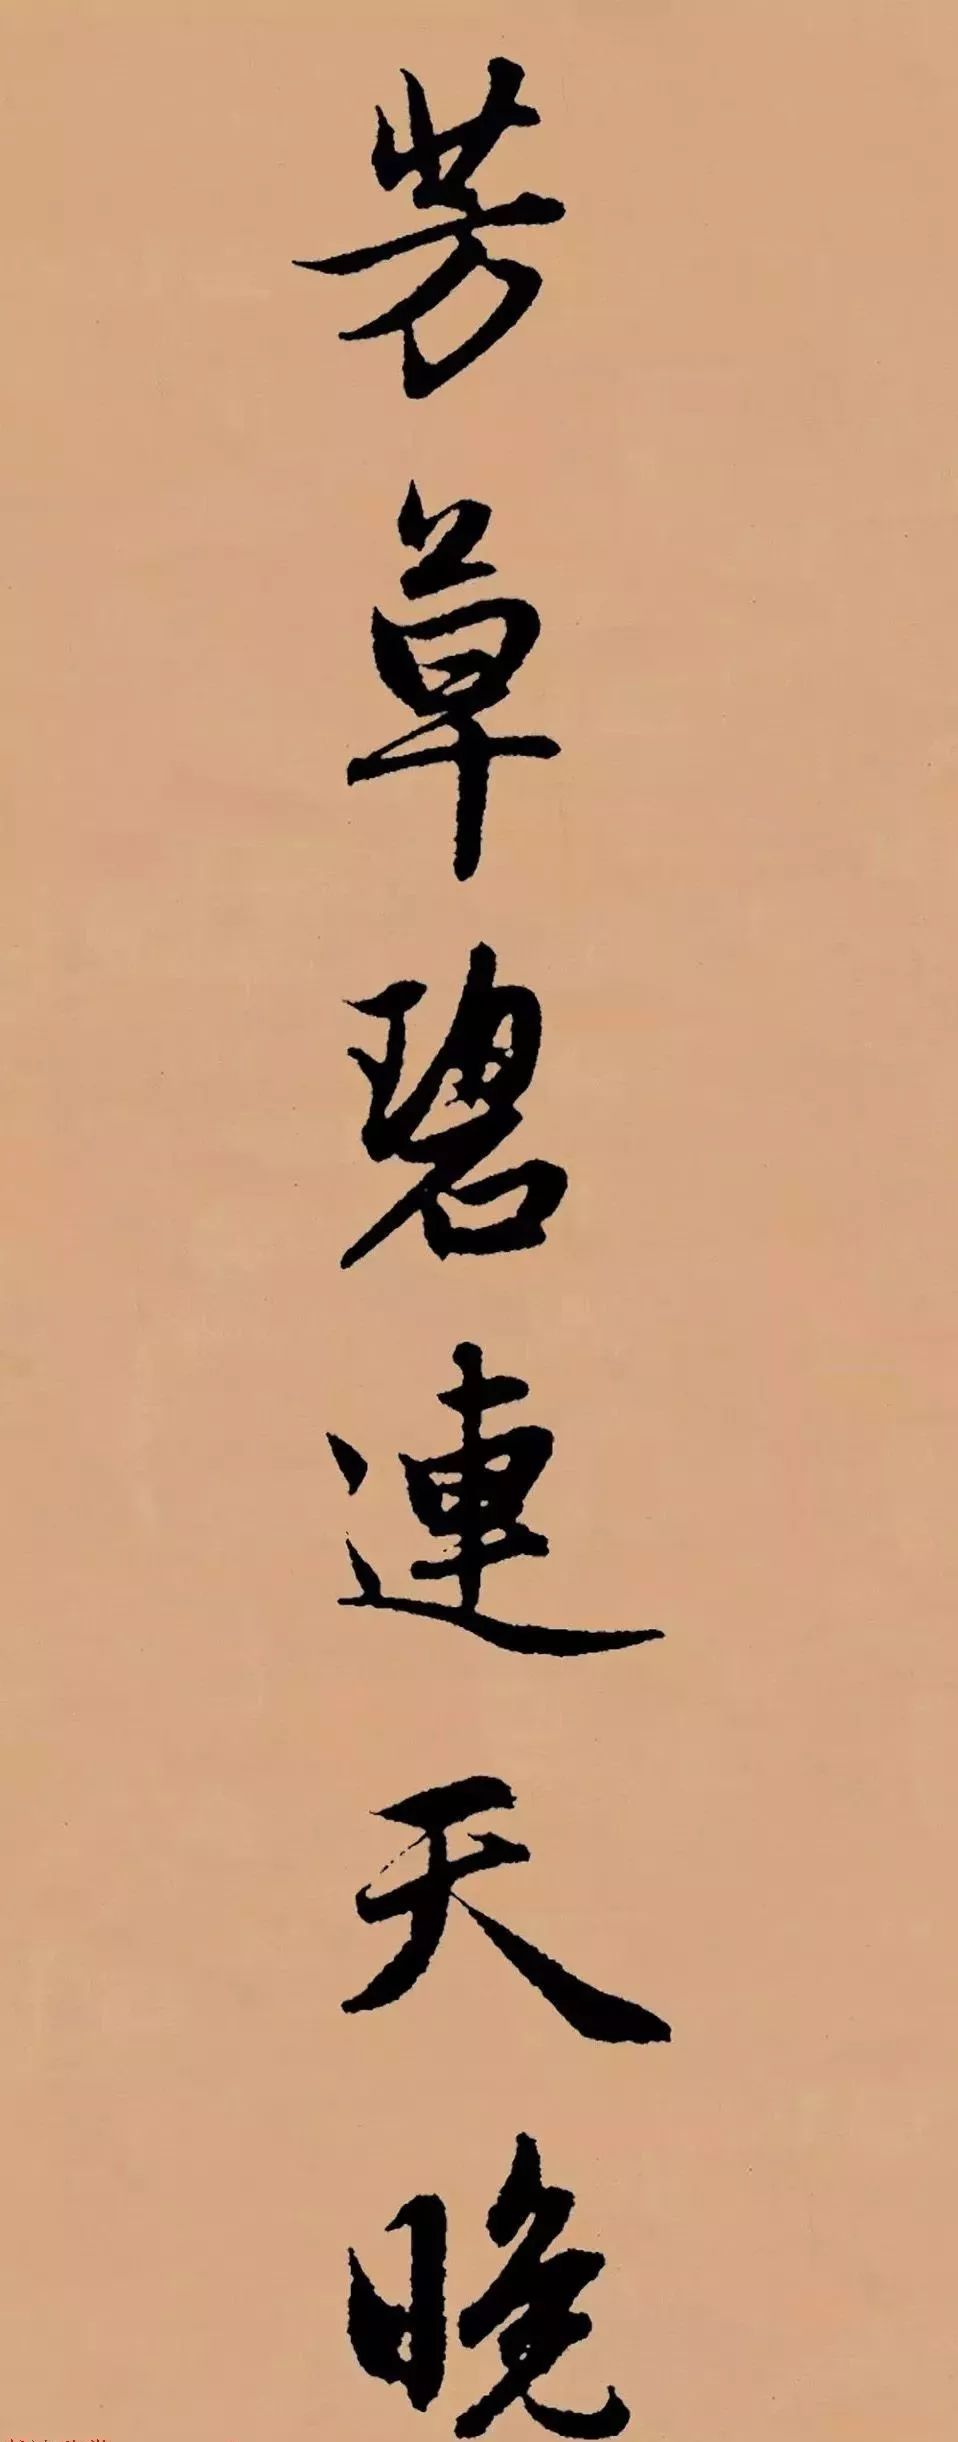 芳草碧連天晚